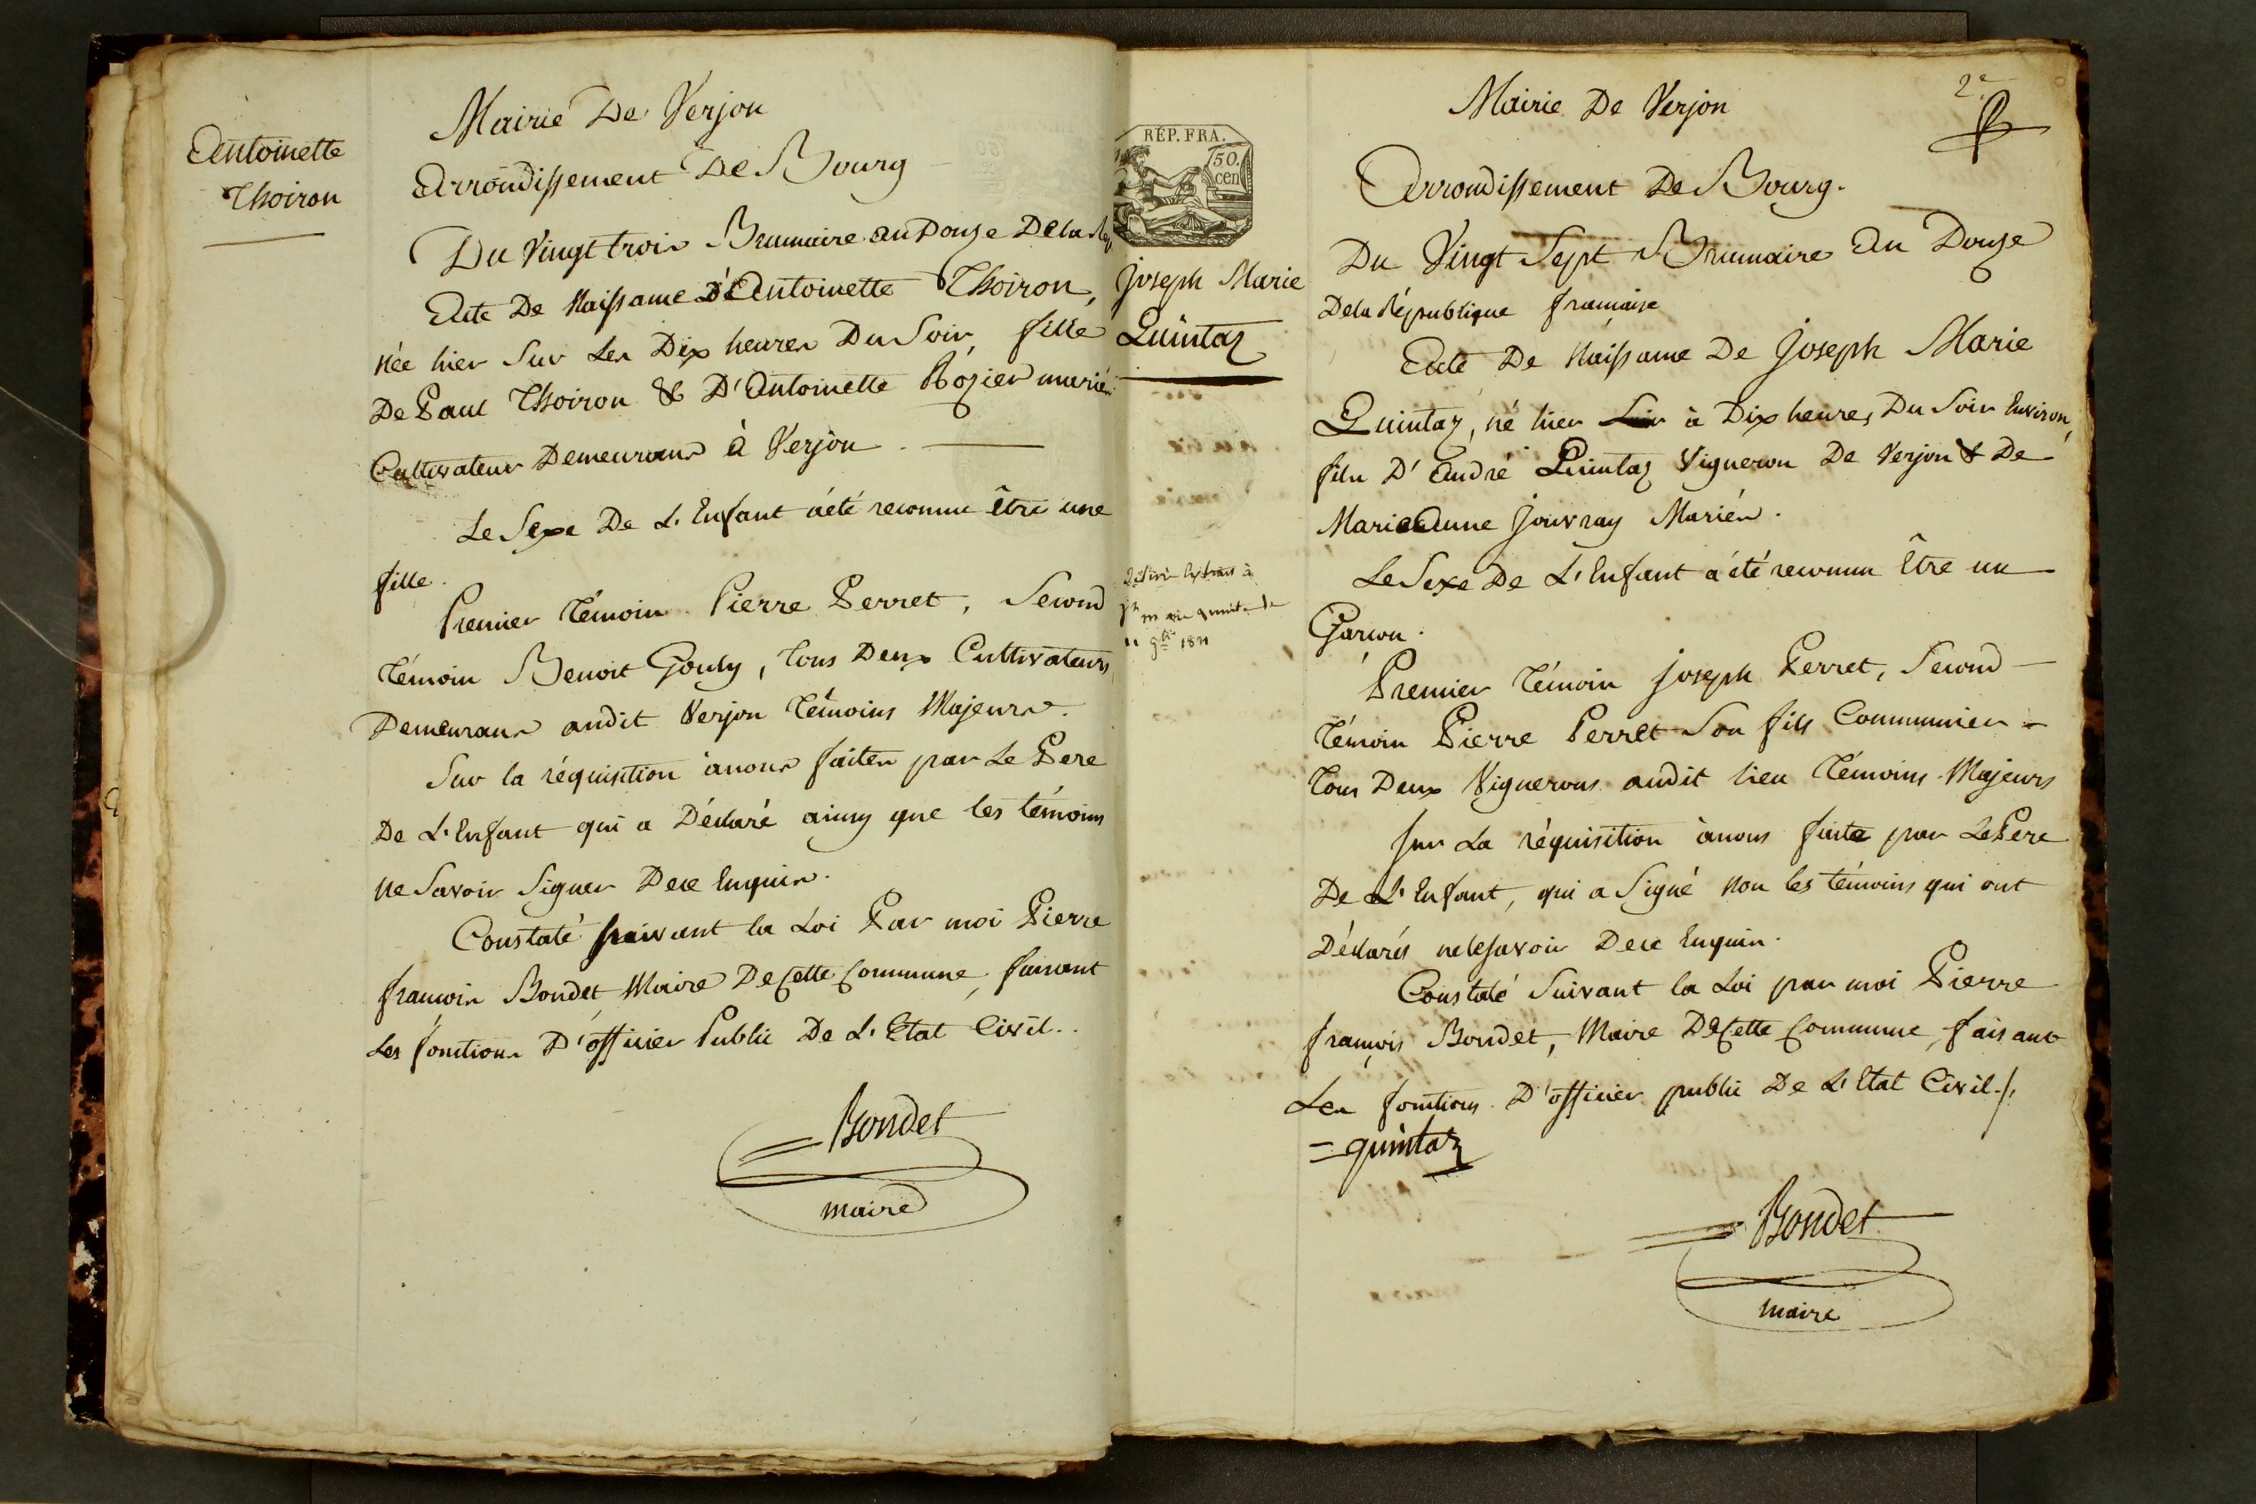 Antoinette
Thoiron
Mairie De Verjon
Arrondissement De Bourg
Du Vingt trois Brumaire an Douze De la Rep
Acte De Naissance D'Antoinette Thoiron,
née hier Sur Les Dix heures Du Soir, fille
De Paul Thoiron & D'Antoinette Rozier mariés
Cultivateurs Demeurans à Verjon.
Le Sexe De L'Enfant a été reconnu être une
fille.
Premier témoin Pierre Perret, Second
témoin Benoit Gouly, tous Deux Cultivateurs
Demeurans audit Verjon témoins Majeurs.
Sur la réquisition à nous faites par Le Pere
De L'Enfant qui a Déclaré ainsy que les témoins
ne Savoir Signer De ce Enquis.
Constaté suivant la Loi Par moi Pierre
françois Bondet, Maire De Cette Commune, faisant
Les fonctions D'officier Public De L'Etat Civil.
Bondet
maire
RÉP. FRA.
50.
cen
Joseph Marie
Quintaz
1811
2e
Mairie De Verjon
Arrondissement De Bourg.
Du Vingt Sept Brumaire An Douze
De la République française
Acte De Naissance De Joseph Marie
Quintaz, né hier à Dix heures Du Soir Environ,
fils D'André Quintaz Vigneron De Verjon & De
Marie Anne Jouvray Mariés.
Le Sexe De L'Enfant a été reconnu Être un
Garcon.
Premier témoin Joseph Perret, Second
témoin Pierre Perret Son fils Communier
tous Deux Vignerons audit lieu témoins Majeurs
sur La réquisition à nous faite par Le Pere
De L'Enfant, qui a Signé non les témoins qui ont
Déclarés ne le savoir De ce Enquis.
Constaté Suivant la Loi par moi Pierre
françois Bondet, Maire De Cette Commune, faisant
Les fonctions D'officier public De L'Etat Civil./.
quintaz
Bondet
maire